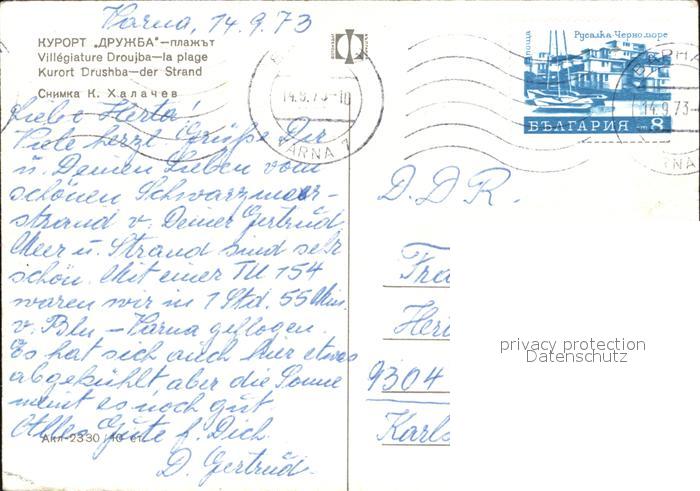 Varna, 14.9.73
КУРОРТ „ДРУЖБА"—плажът
Villégiature Droujba—la plage
Kurort Drushba—der Strand
Снимка К. Халачев
Liebe Herta!
Viele herzl. Grüße Dir
u. Deinen Lieben vom
schönen Schwarzmeer-
strand v. Deiner Gertrud
Meer u. Strand sind sehr
schön. Mit einer TU 154
waren wir in 1 Std. 55 Min
v. Bln – Varna geflogen.
Es hat sich auch hier etwas
abgekühlt aber die Sonne
meint es noch gut.
Alles Gute f. Dich
D. Gertrud.
Акл-2330/10 ст.
14.9.73-10
VARNA 7
поща
Русалка Черноморе
БЪЛГАРИЯ ст 8
ВАРНА
14 9 73-
D.D.R.
Fra
Heri
9304
Karls
privacy protection
Datenschutz